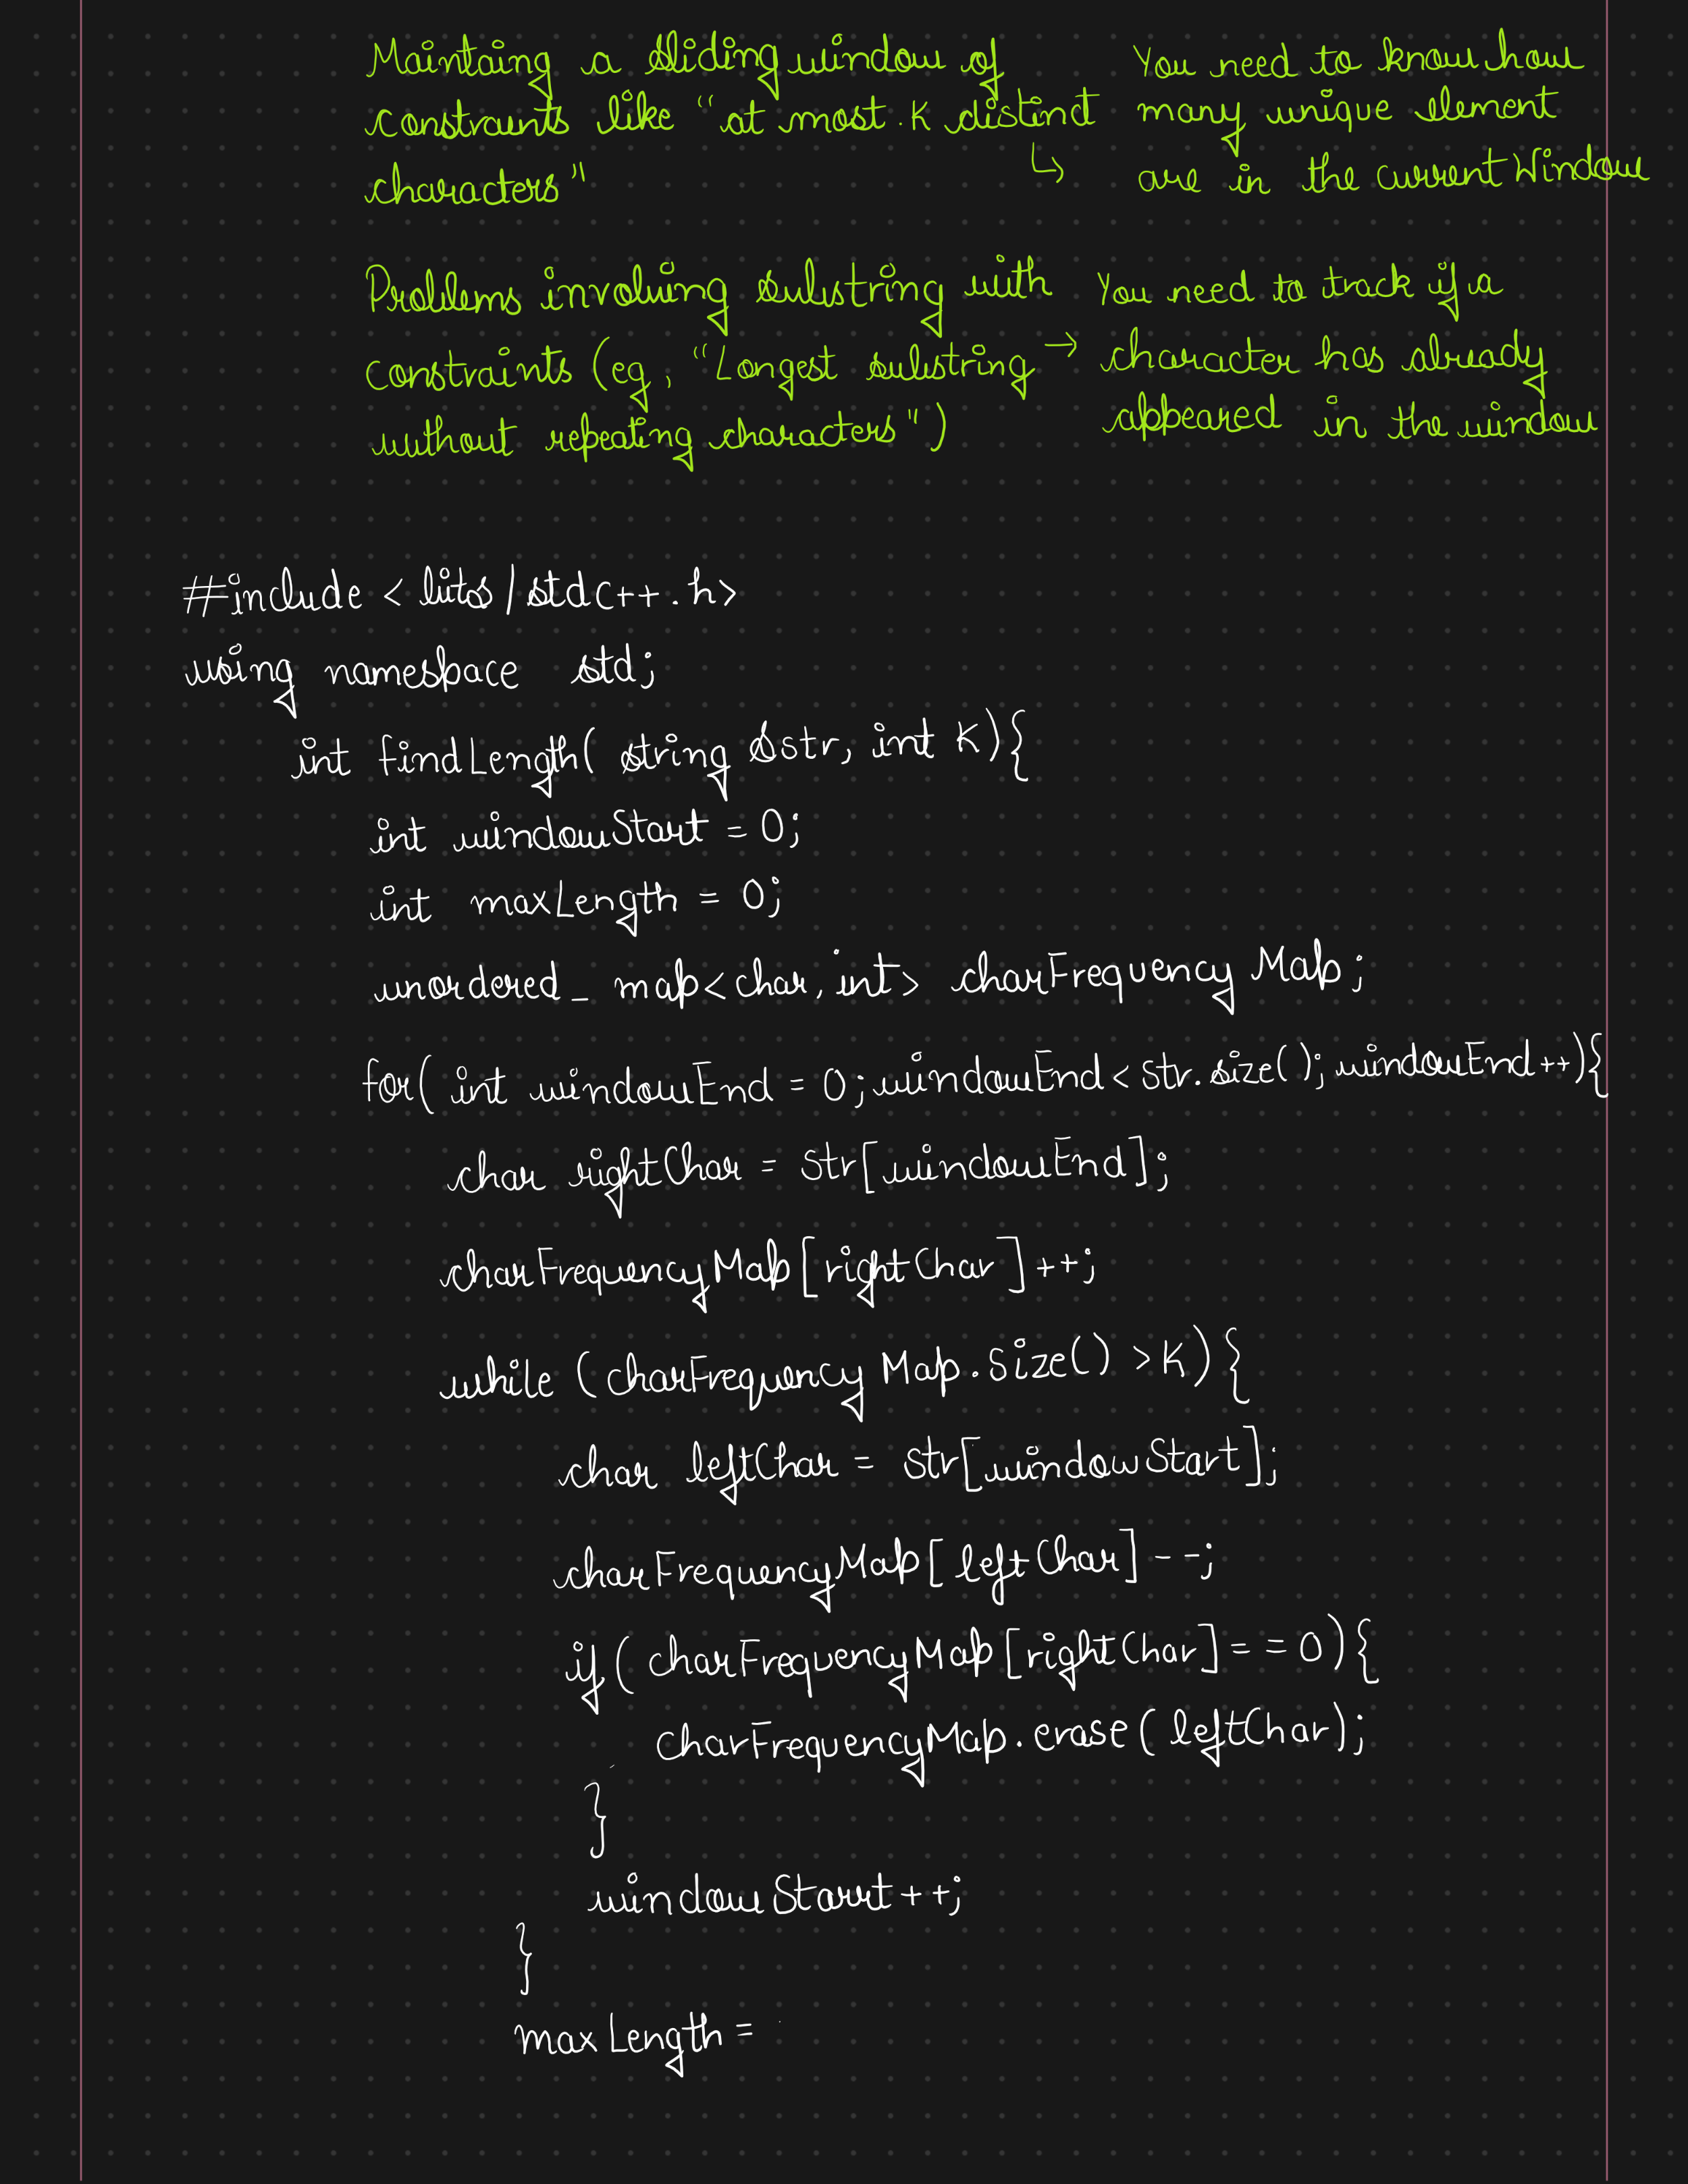 Maintaing a sliding window of
constraints like "at most K distinct
characters"
↳ You need to know how
many unique element
are in the current Window
Problems involving substring with
constraints (eg, "Longest substring
without repeating characters")
→ You need to track if a
character has already
appeared in the window
#include <bits/stdc++.h>
using namespace std;
int findLength( string &str, int K){
int windowStart = 0;
int maxLength = 0;
unordered_map<char, int> charFrequencyMap;
for( int windowEnd = 0; windowEnd < str.size(); windowEnd++){
char rightChar = str[windowEnd];
charFrequencyMap[rightChar]++;
while (charFrequencyMap.size() >K){
char leftChar = str[windowStart];
charFrequencyMap[leftChar]--;
if( charFrequencyMap[rightChar]==0){
charFrequencyMap.erase(leftChar);
}
windowStart++;
}
maxLength =